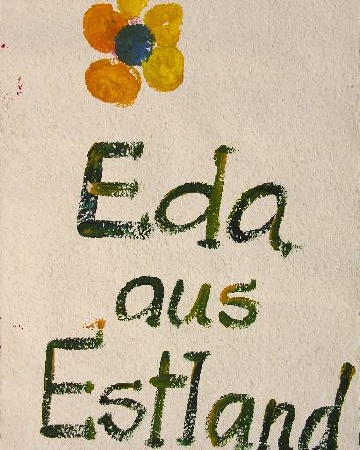 Eda
aus
Estland